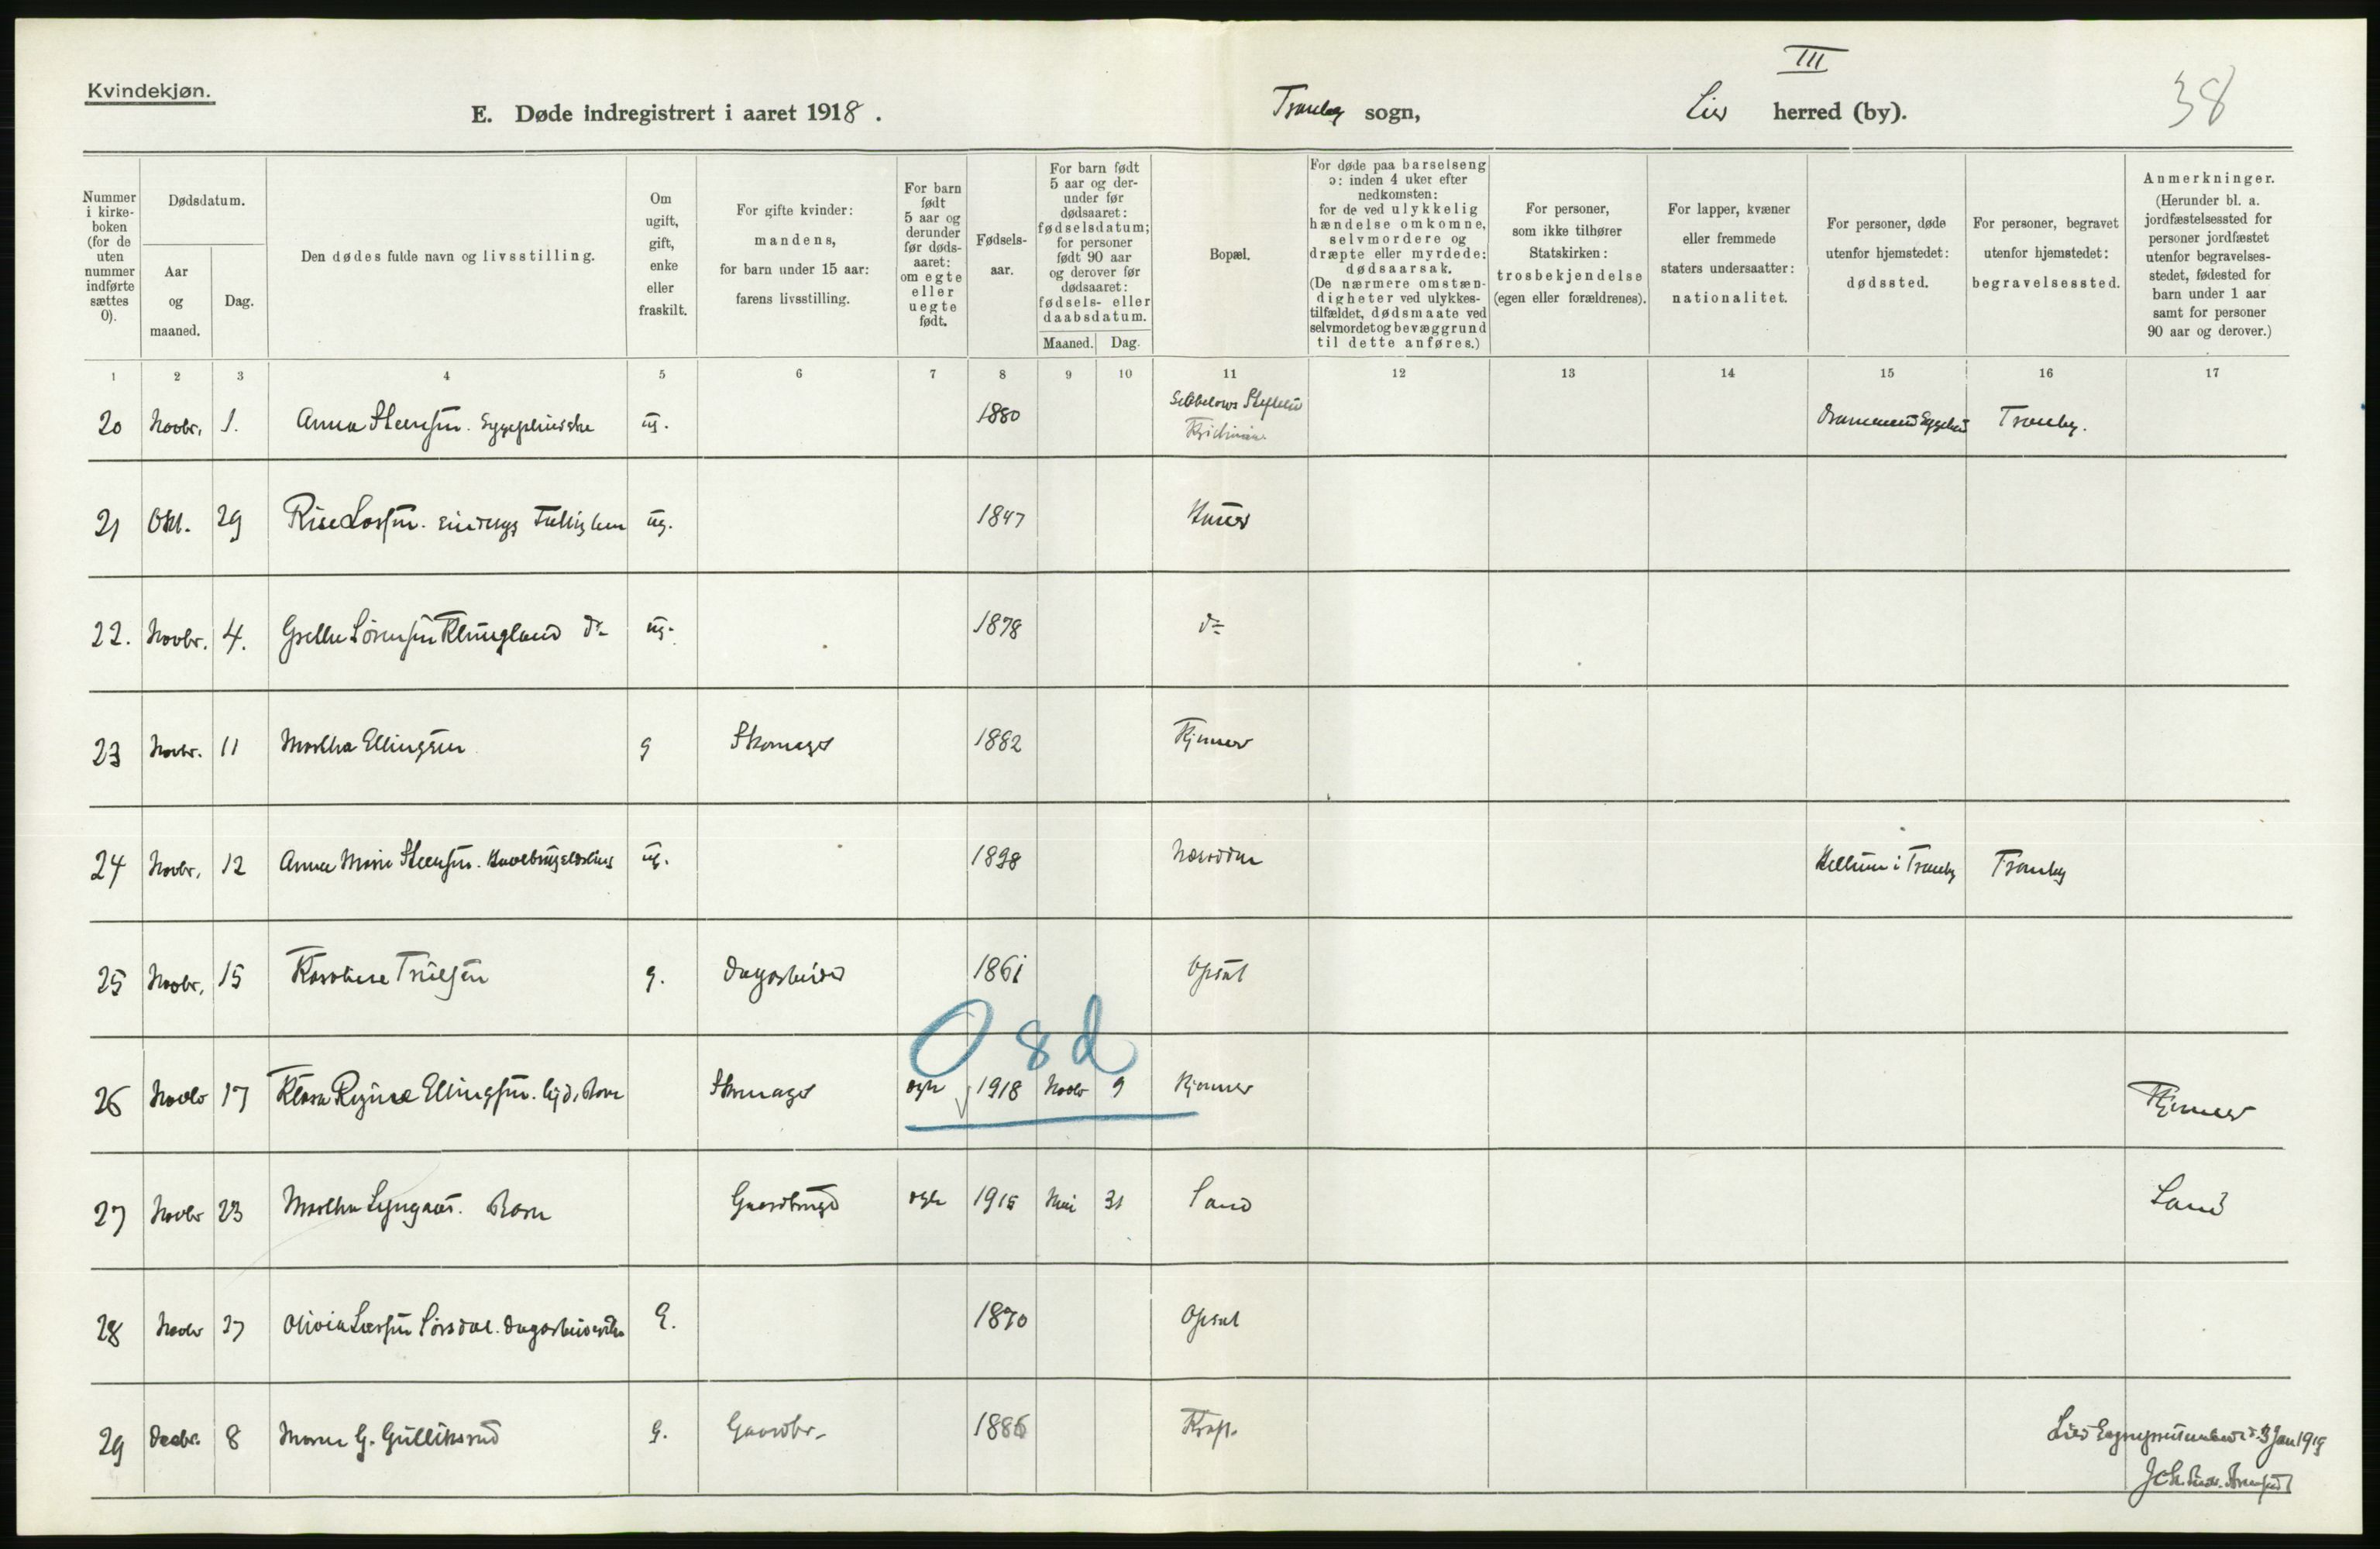 III
38
Kvindekjøn.
E. Døde indregistrert i aaret 1918. Tranby sogn, Lier herred (by).
Nummer i kirkeboken (for de uten nummer indførte sættes 0).
Dødsdatum.
Aar og maaned.
Dag.
Den dødes fulde navn og livsstilling.
Om ugift, gift, enke eller fraskilt.
For gifte kvinder: mandens, for barn under 15 aar: farens livsstilling.
For barn født 5 aar og derunder før dødsaaret: om egte eller uegte født.
Fødselsaar.
For barn født 5 aar og derunder før dødsaaret: fødselsdatum; for personer født 90 aar og derover før dødsaaret: fødsels- eller daabsdatum.
Maaned. Dag.
Bopæl.
For døde paa barselseng ɔ: inden 4 uker efter nedkomsten: for de ved ulykkelig hændelse omkomne, selvmordere og dræpte eller myrdede: dødsaarsak. (De nærmere omstændigheter ved ulykkestilfældet, dødsmaate ved selvmordet og bevæggrund til dette anføres.)
For personer, som ikke tilhører Statskirken: trosbekjendelse (egen eller forældrenes).
For lapper, kvæner eller fremmede staters undersaatter: nationalitet.
For personer, døde utenfor hjemstedet: dødssted.
For personer, begravet utenfor hjemstedet: begravelsessted.
Anmerkninger. (Herunder bl. a. jordfæstelsessted for personer jordfæstet utenfor begravelsesstedet, fødested for barn under 1 aar samt for personer 90 aar og derover.)
1 2 3 4 5 6 7 8 9 10 11 12 13 14 15 16 17
20 Novbr. 1. Anna Steensen. Sygepleierske ug. 1880 Tranby.
21 Okt. 29 Larsen. ug. 1847
22. Novbr. 4. Sørensen Klingland do ug. 1878 do
23 Novbr. 11 Martha Ellingsen g Skomager 1882 Kjenner
24 Novbr. 12 Anna Marie Steensen. ug. 1898 Hellum i Tranby Tranby
25 Novbr. 15 Karoline Truelsen g. Dagarbeider 1861 Opsal
O 8 d
26 Novbr 17 Klara Regine Ellingsen. Barn Skomager egte 1918 Novbr 9 Kjenner Kjenner
27 Novbr 23 Martha Lyngaas. Barn Gaardbruger egte 1915 Mai 31 Land Land
28 Novbr 27 Olivia Larsen Sørsdal. G. 1870 Opsal
29 Decbr. 8 Maren G. Gulliksrud G. Gaardbr. 1886
Lier 3 Jan 1919